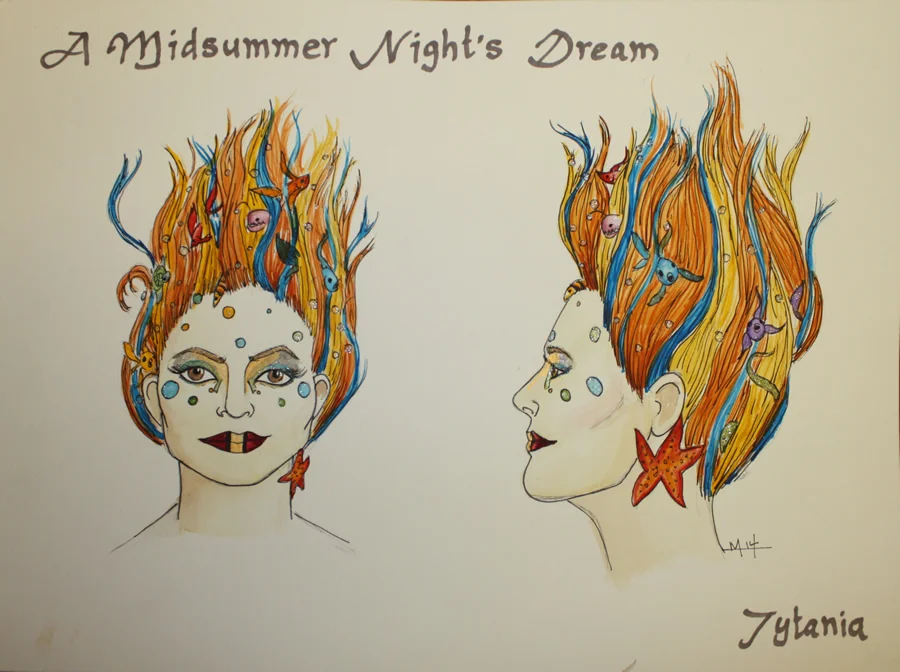 A Midsummer Night's Dream
M 14
Tytania